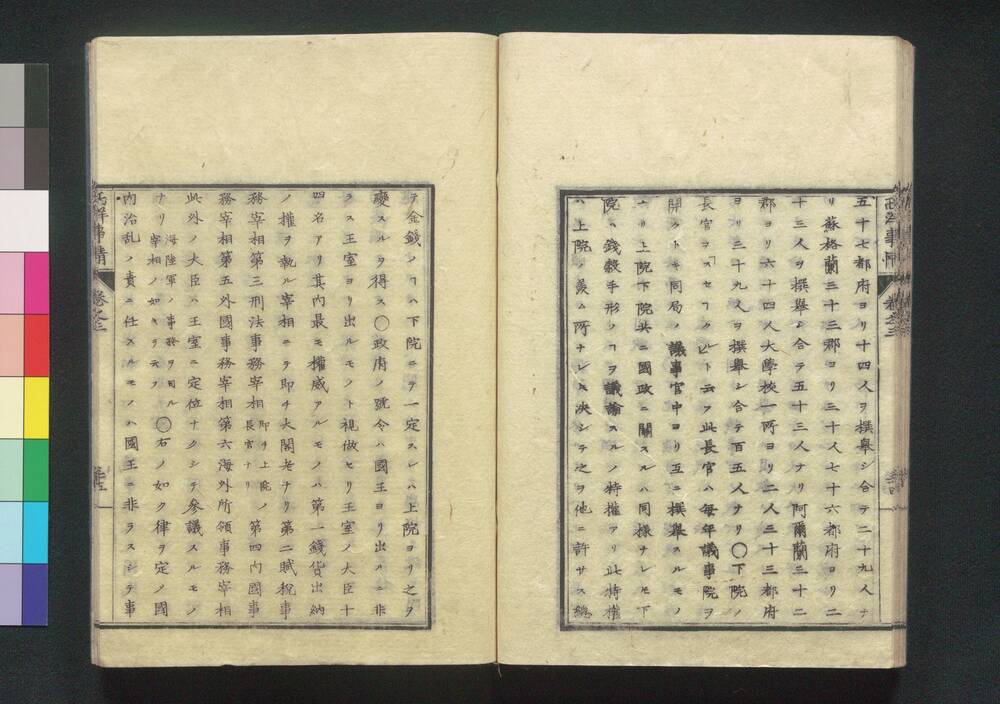 五十七都府ヨリ十四人ヲ撰舉シ合テ二十九人ナ
リ蘇格蘭三十三郡ヨリ三十人七十六都府ヨリ二
十三人ヲ撰舉シ合テ五十三人ナリ阿爾蘭三十二
郡ヨリ六十四人大學校一所ヨリ二人三十三都府
ヨリ三十九人ヲ撰舉シ合テ百五人ナリ〇下院ノ
長官ヲ「スセークル」ト云フ此長官ハ每年議事院ヲ
開クトキ同局ノ議事官中ヨリ互ニ撰舉スルモノ
ナリ上院下院共ニ國政ニ關スルハ同樣ナレモ下
院ハ錢穀手形ノヿヲ議論スルノ特權アリ此特權
ハ上院ノ羨ム所ナレモ決シテ之ヲ他ニ許サス總
卷之三
テ金錢ノヿハ下院ニテ一定スレハ上院ヨリ之ヲ
變スルヲ得ス〇政府ノ號令ハ國王ヨリ出ルニ非
ラス王室ヨリ出ルモノト視做セリ王室ノ大臣十
四名アリ其內最モ權威アルモノハ第一錢貨出納
ノ權ヲ執ル宰相ニテ即チ大閣老ナリ第二賦稅事
務宰相第三刑法事務宰相即チ上院ノ長官ナリ第四內國事
務宰相第五外國事務宰相第六海外所領事務宰相
此外ノ大臣ハ王室ニ定位ナクシテ參議スルモノ
ナリ海陸軍ノ事務ヲ司ル宰相ノ如キヲ云フ〇右ノ如ク律ヲ定ノ國
內治乱ノ責ニ任スルモノハ國王ニ非ラスシテ事
卷之三